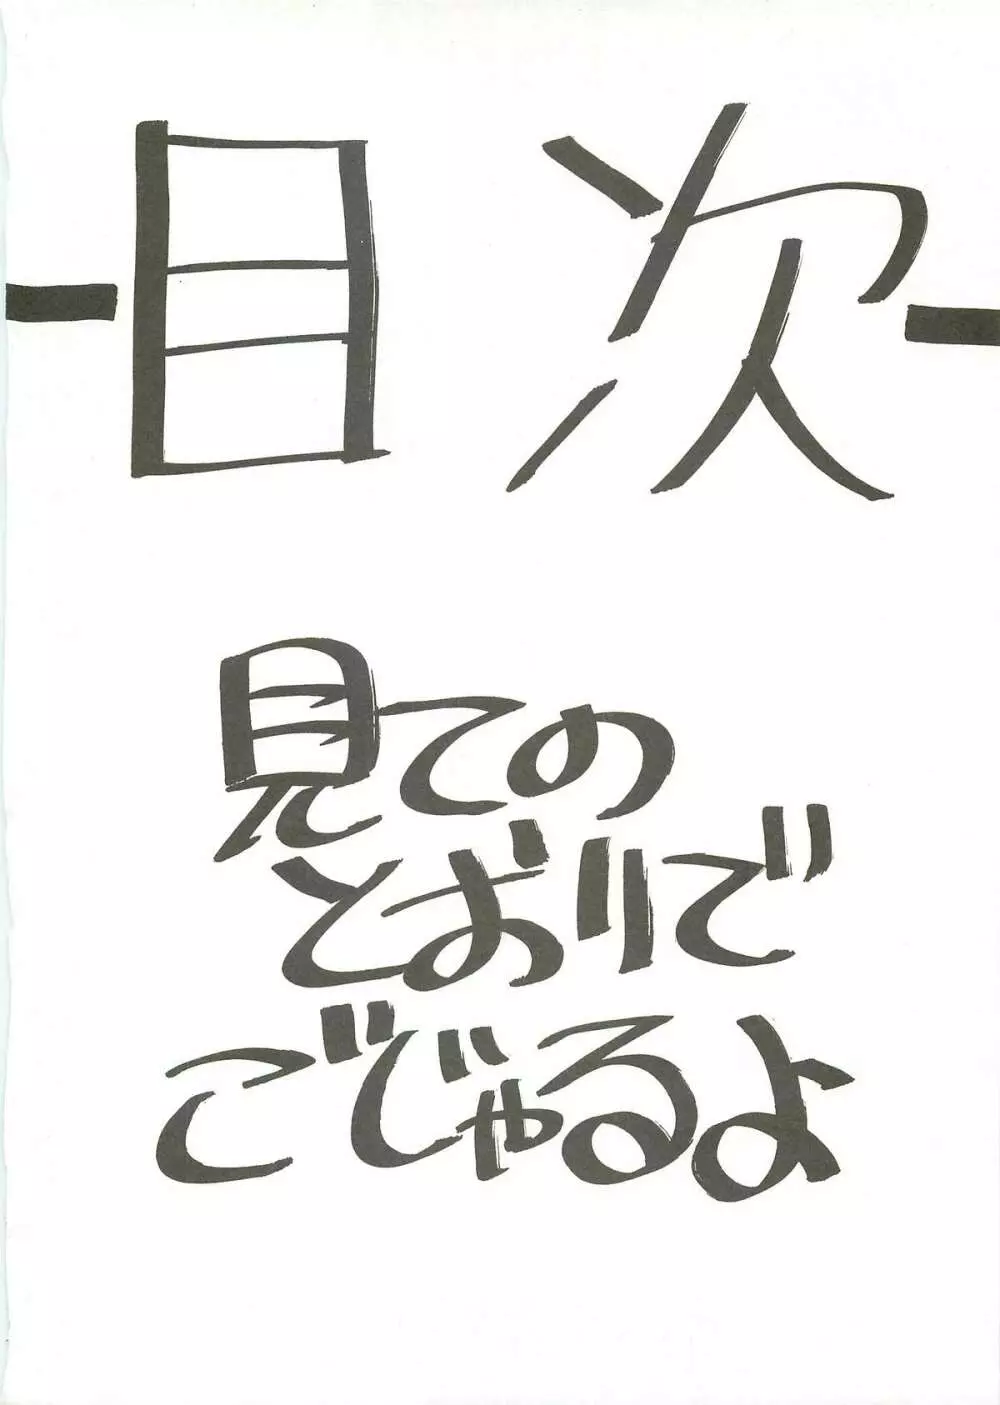 目次
見ての
とおりで
ごじゃるよ